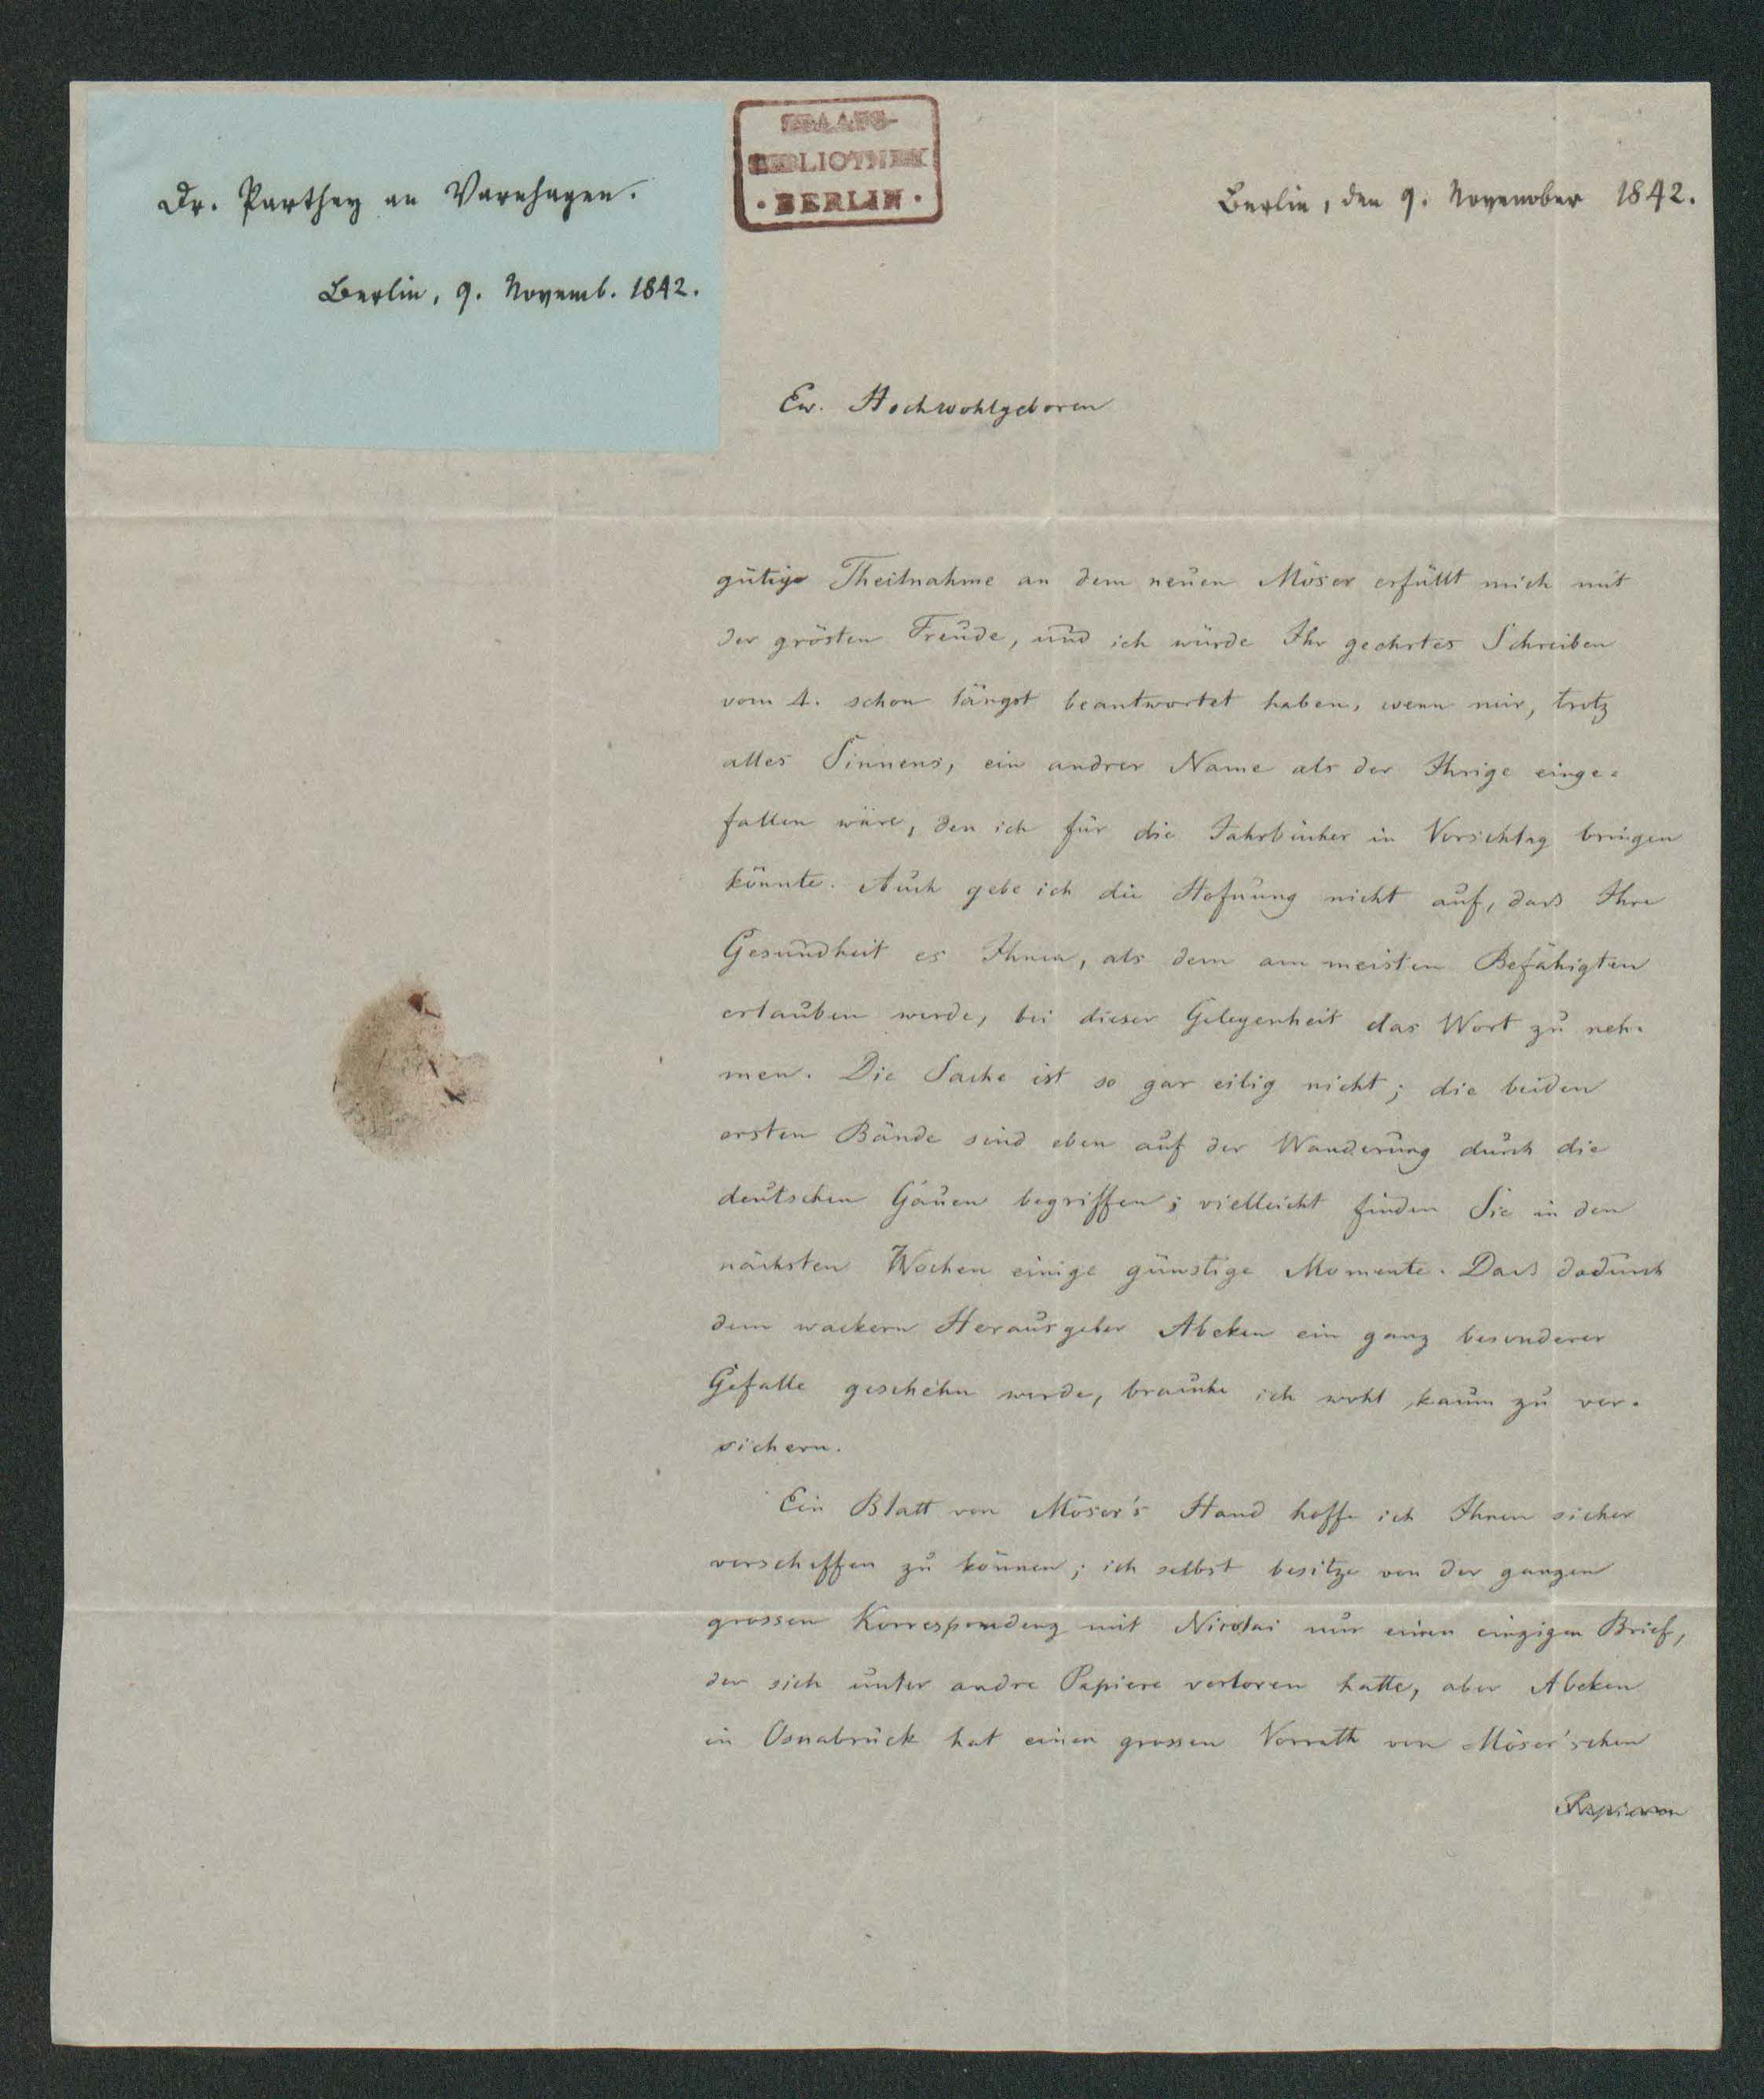 Dr. Parthey an Varnhagen.
Berlin, 9. Novemb. 1842.
STAATS-
BIBLIOTHEK
· BERLIN ·
Berlin, den 9. November 1842.
Ew. Hochwohlgeboren
gütige Theilnahme an dem neuen Möser erfüllt mich mit
der grösten Freude, und ich würde Ihr geehrtes Schreiben
vom 4. schon längst beantwortet haben, wenn mir, trotz
alles Sinnens, ein andrer Name als der Ihrige einge=
fallen wäre, den ich für die Jahrbücher in Vorschlag bringen
könnte. Auch gebe ich die Hofnung nicht auf, dass Ihre
Gesundheit es Ihnen, als dem am meisten Befähigten
erlauben werde, bei dieser Gelegenheit das Wort zu neh-
men. Die Sache ist so gar eilig nicht; die beiden
ersten Bände sind eben auf der Wanderung durch die
deutschen Gauen begriffen; vielleicht finden Sie in den
nächsten Wochen einige günstige Momente. Dass dadurch
dem wackern Herausgeber Abeken ein ganz besonderer
Gefalle geschehn werde, brauche ich wohl kaum zu ver-
sichern.
Ein Blatt von Möser's Hand hoffe ich Ihnen sicher
verschaffen zu können; ich selbst besitze von der ganzen
grossen Korrespondenz mit Nicolai nur einen einzigen Brief,
der sich unter andre Papiere verloren hatte, aber Abeken
in Osnabrück hat einen grossen Vorrath von Möser'schen
Papieren